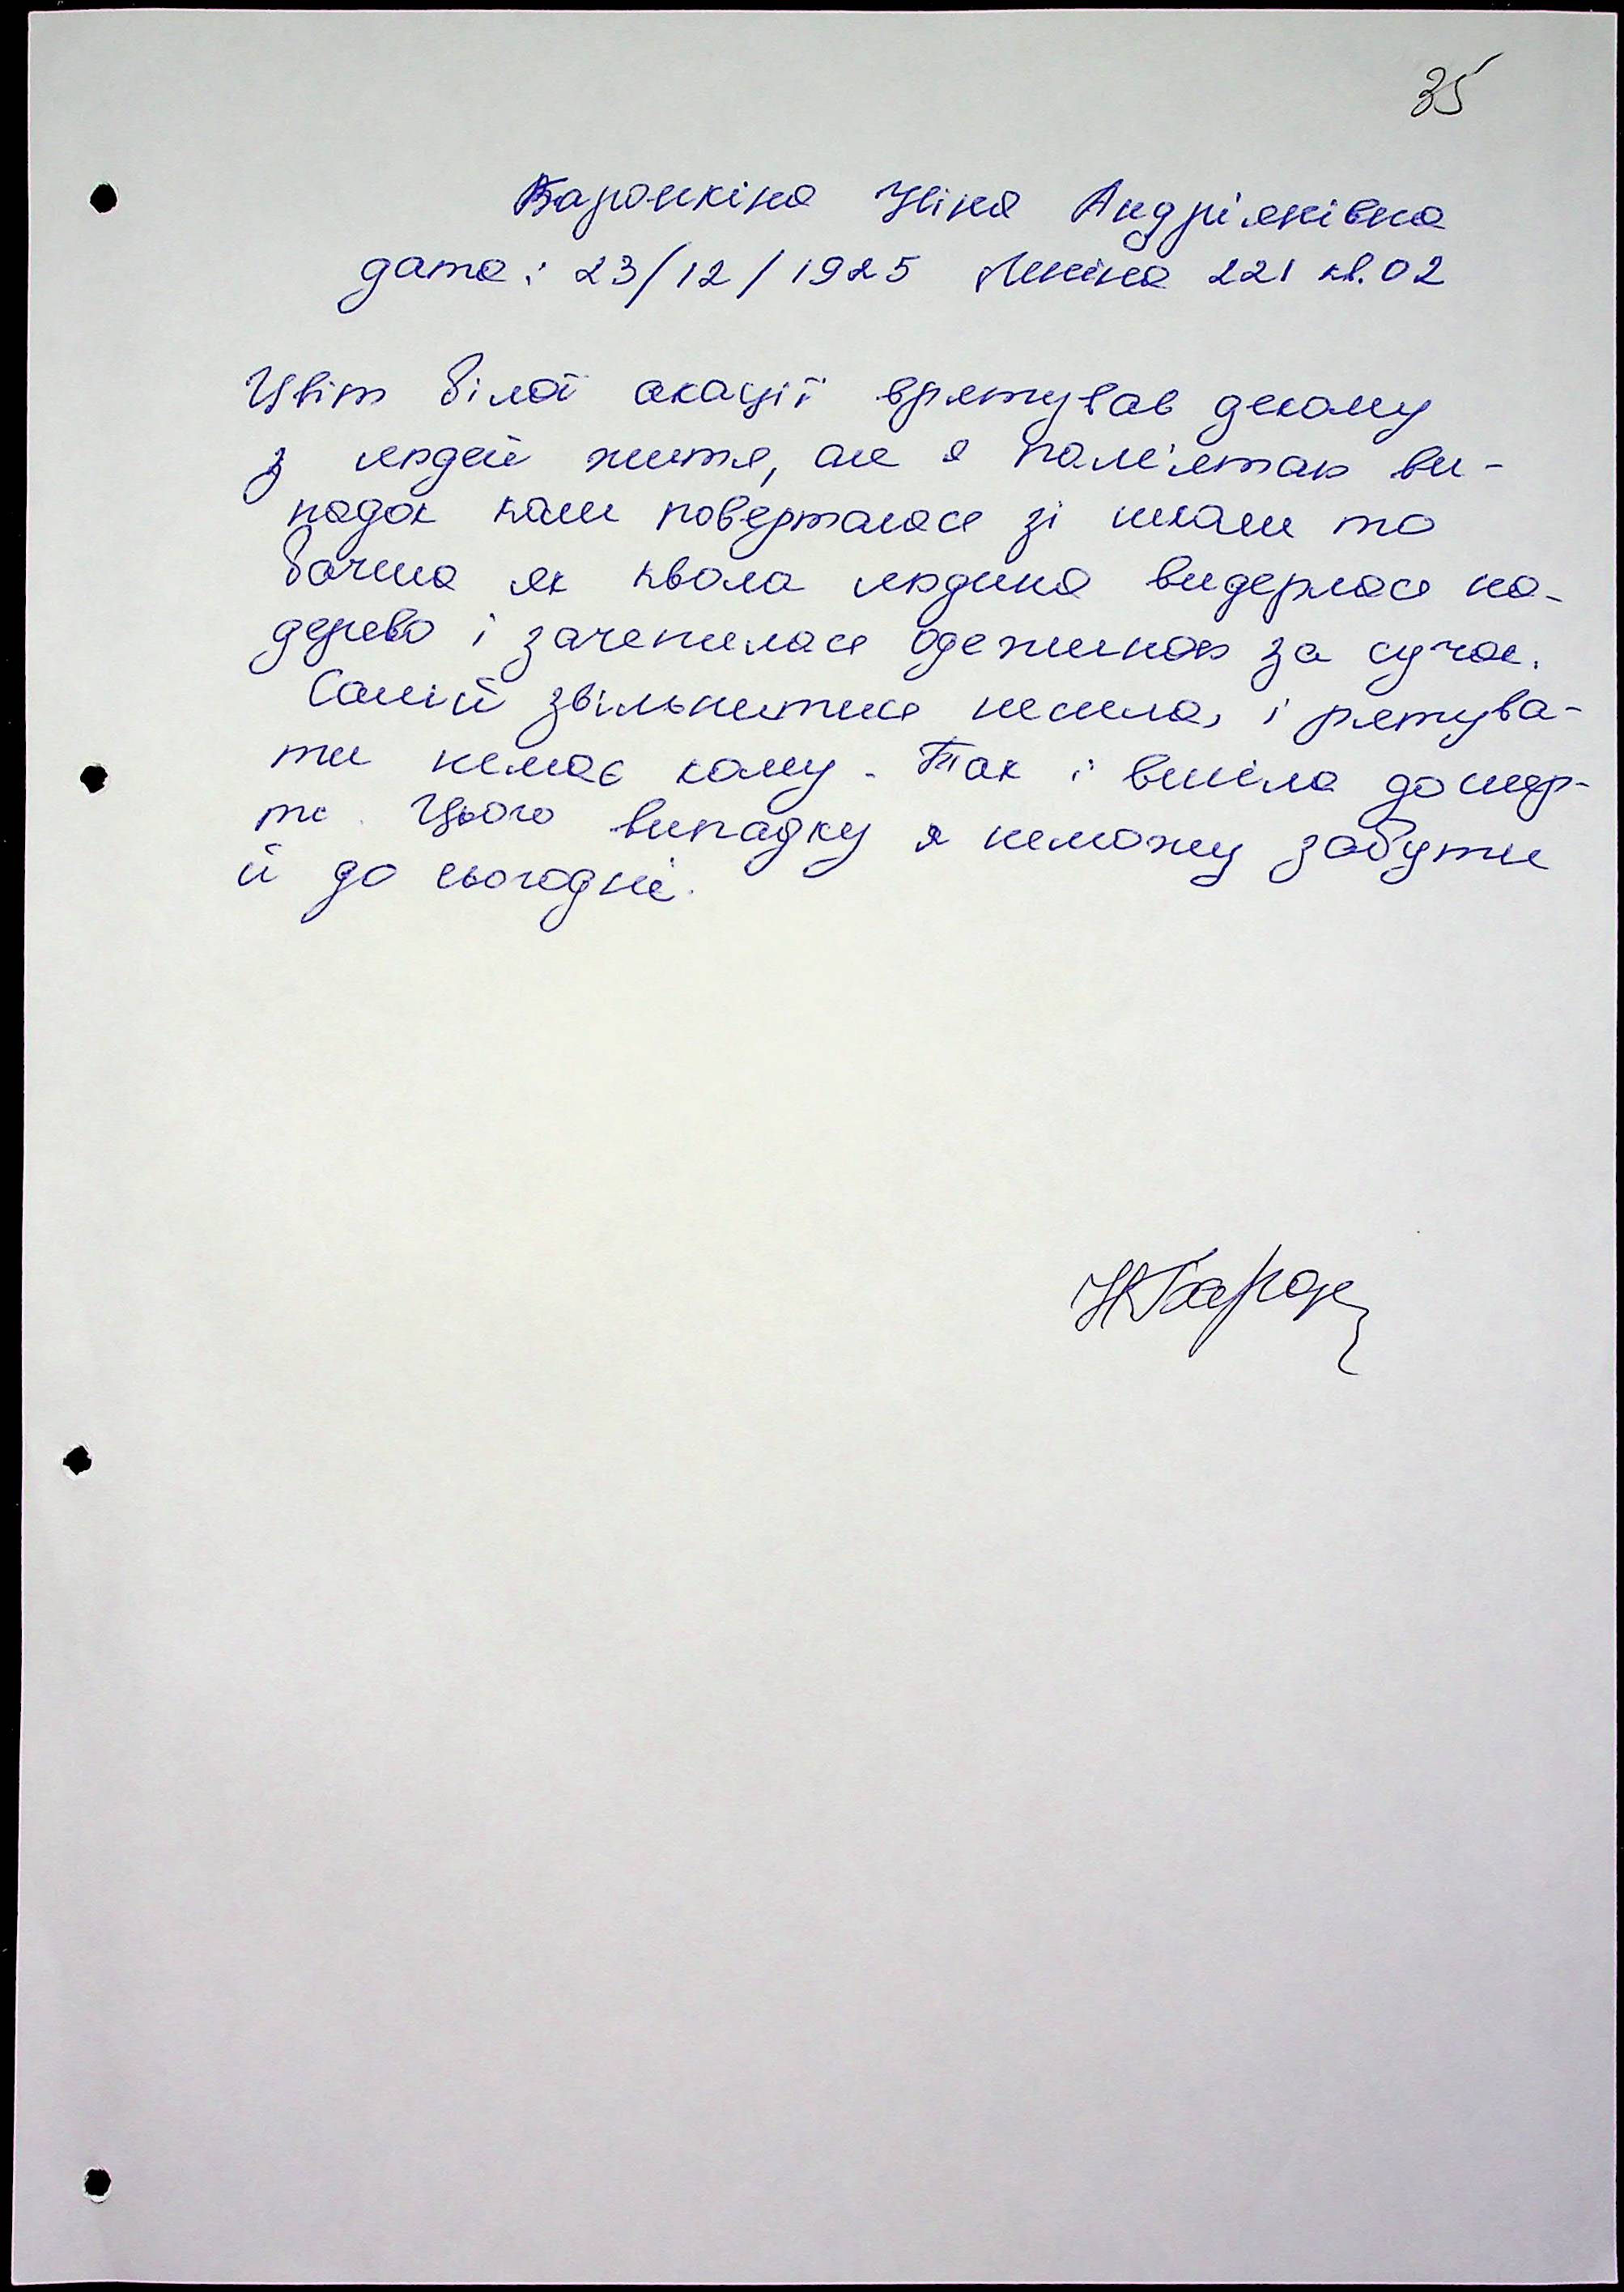 35
Баронкіна Ніна Андріянівна
дата: 23/12/1925 Леніна 221 кв. 02
Цвіт білої акації врятував декому
з людей життя, але я пам'ятаю ви-
падок коли поверталася зі школи то
бачила як квола людина видерлася на-
дерево і зачепилася одежиною за сучок.
Самій звільнитися несила, і рятува-
ти немає кому. Так і висіла до смер-
ті. Цього випадку я неможу забути
й до сьогодні.